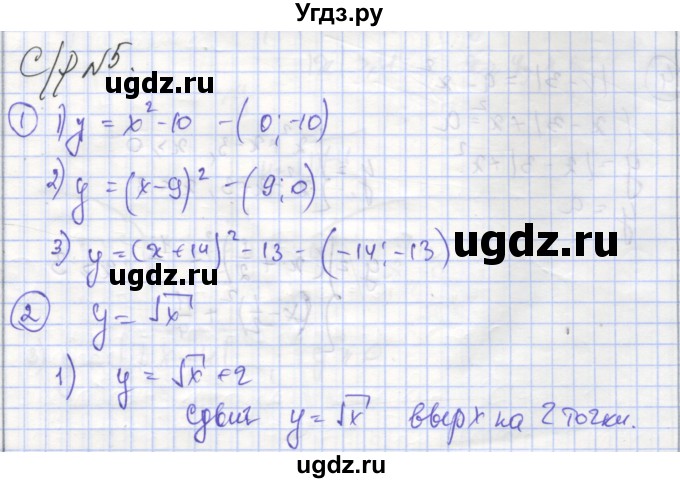 Угдз.ру
С/р №5.
ugdz.ru ugdz.ru
① 1) y = x² - 10 - (0; -10)
2) y = (x - 9)² - (9; 0)
ugdz.ru ugdz.ru
3) y = (x + 14)² - 13 - (-14; -13)
② y = √x
ugdz.ru ugdz.ru
1) y = √x + 2
сдвиг y = √x вверх на 2 точки.
ugdz.ru